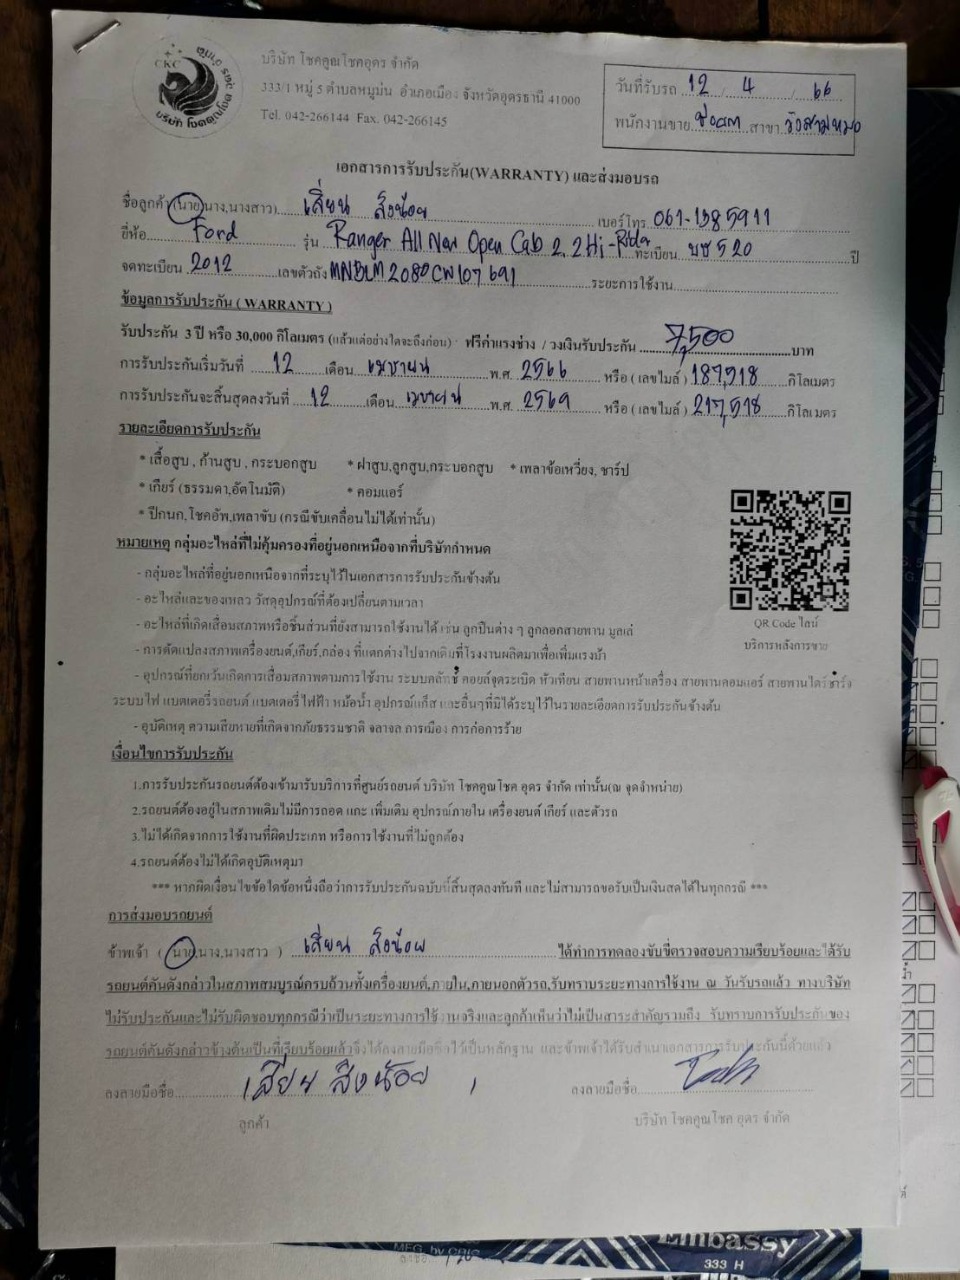 CKC
บริษัท โชคคูณโชคอุดร จำกัด
333/1 หมู่ 5 ตำบลหมูม่น อำเภอเมือง จังหวัดอุดรธานี 41000
Tel. 042-266144 Fax. 042-266145
วันที่รับรถ 12 / 4 / 66
พนักงานขาย สาขา วังสามหมอ
เอกสารการรับประกัน(WARRANTY) และส่งมอบรถ
ชื่อลูกค้า (นาย,นาง,นางสาว) เสี่ยน สิงน้อย เบอร์โทร 061-1585911
ยี่ห้อ Ford รุ่น Ranger All New Open Cab 2.2 Hi-Rider ทะเบียน บช 520 ปี
จดทะเบียน 2012 เลขตัวถัง ระยะการใช้งาน
ข้อมูลการรับประกัน ( WARRANTY )
รับประกัน 3 ปี หรือ 30,000 กิโลเมตร (แล้วแต่อย่างใดจะถึงก่อน) ฟรีค่าแรงช่าง / วงเงินรับประกัน 7,500 บาท
การรับประกันเริ่มวันที่ 12 เดือน เมษายน พ.ศ. 2566 หรือ ( เลขไมล์ ) 187,518 กิโลเมตร
การรับประกันจะสิ้นสุดลงวันที่ 12 เดือน เมษายน พ.ศ. 2569 หรือ ( เลขไมล์ ) 217,518 กิโลเมตร
รายละเอียดการรับประกัน
* เสื้อสูบ , ก้านสูบ , กระบอกสูบ * ฝาสูบ,ลูกสูบ,กระบอกสูบ * เพลาข้อเหวี่ยง, ชาร์ป
* เกียร์ (ธรรมดา,อัตโนมัติ) * คอมแอร์
* ปีกนก, โชคอัพ,เพลาขับ (กรณีขับเคลื่อนไม่ได้เท่านั้น)
หมายเหตุ กลุ่มอะไหล่ที่ไม่คุ้มครองที่อยู่นอกเหนือจากที่บริษัทกำหนด
- กลุ่มอะไหล่ที่อยู่นอกเหนือจากที่ระบุไว้ในเอกสารการรับประกันข้างต้น
- อะไหล่และของเหลว วัสดุอุปกรณ์ที่ต้องเปลี่ยนตามเวลา
- อะไหล่ที่เกิดเสื่อมสภาพหรือชิ้นส่วนที่ยังสามารถใช้งานได้ เช่น ลูกปืนต่าง ๆ ลูกลอกสายพาน มูเล่
QR Code ไลน์
บริการหลังการขาย
- การดัดแปลงสภาพเครื่องยนต์,เกียร์,กล่อง ที่แตกต่างไปจากเดิมที่โรงงานผลิตมาเพื่อเพิ่มแรงม้า
- อุปกรณ์ที่ยกเว้นเกิดการเสื่อมสภาพตามการใช้งาน ระบบคลัทช์ คอยล์จุดระเบิด หัวเทียน สายพานหน้าเครื่อง สายพานคอมแอร์ สายพานไดร์ชาร์จ
ระบบไฟ แบตเตอรี่รถยนต์ แบตเตอรี่ไฟฟ้า หม้อน้ำ อุปกรณ์แก๊ส และอื่นๆที่มิได้ระบุไว้ในรายละเอียดการรับประกันข้างต้น
- อุบัติเหตุ ความเสียหายที่เกิดจากภัยธรรมชาติ จลาจล การเมือง การก่อการร้าย
เงื่อนไขการรับประกัน
1.การรับประกันรถยนต์ต้องเข้ามารับบริการที่ศูนย์รถยนต์ บริษัท โชคคูณโชค อุดร จำกัด เท่านั้น(ณ จุดจำหน่าย)
2.รถยนต์ต้องอยู่ในสภาพเดิมไม่มีการถอด แกะ เพิ่มเติม อุปกรณ์ภายใน เครื่องยนต์ เกียร์ และตัวรถ
3.ไม่ได้เกิดจากการใช้งานที่ผิดประเภท หรือการใช้งานที่ไม่ถูกต้อง
4.รถยนต์ต้องไม่ได้เกิดอุบัติเหตุมา
*** หากผิดเงื่อนไขข้อใดข้อหนึ่งถือว่าการรับประกันฉบับนี้สิ้นสุดลงทันที และไม่สามารถขอรับเป็นเงินสดได้ในทุกกรณี ***
การส่งมอบรถยนต์
ข้าพเจ้า ( นาย,นาง,นางสาว ) เสี่ยน สิงน้อย ได้ทำการทดลองขับขี่ตรวจสอบความเรียบร้อยและได้รับ
รถยนต์คันดังกล่าวในสภาพสมบูรณ์ครบถ้วนทั้งเครื่องยนต์,ภายใน,ภายนอกตัวรถ,รับทราบระยะทางการใช้งาน ณ วันรับรถแล้ว ทางบริษัท
ไม่รับประกันและไม่รับผิดชอบทุกกรณีว่าเป็นระยะทางการใช้งานจริงและลูกค้าเห็นว่าไม่เป็นสาระสำคัญรวมถึง รับทราบการรับประกันของ
รถยนต์คันดังกล่าวข้างต้นเป็นที่เรียบร้อยแล้วจึงได้ลงลายมือชื่อไว้เป็นหลักฐาน และข้าพเจ้าได้รับสำเนาเอกสารการรับประกันนี้ด้วยแล้ว
ลงลายมือชื่อ เสี่ยน สิงน้อย ลงลายมือชื่อ
ลูกค้า บริษัท โชคคูณโชค อุดร จำกัด
Embassy
333 H